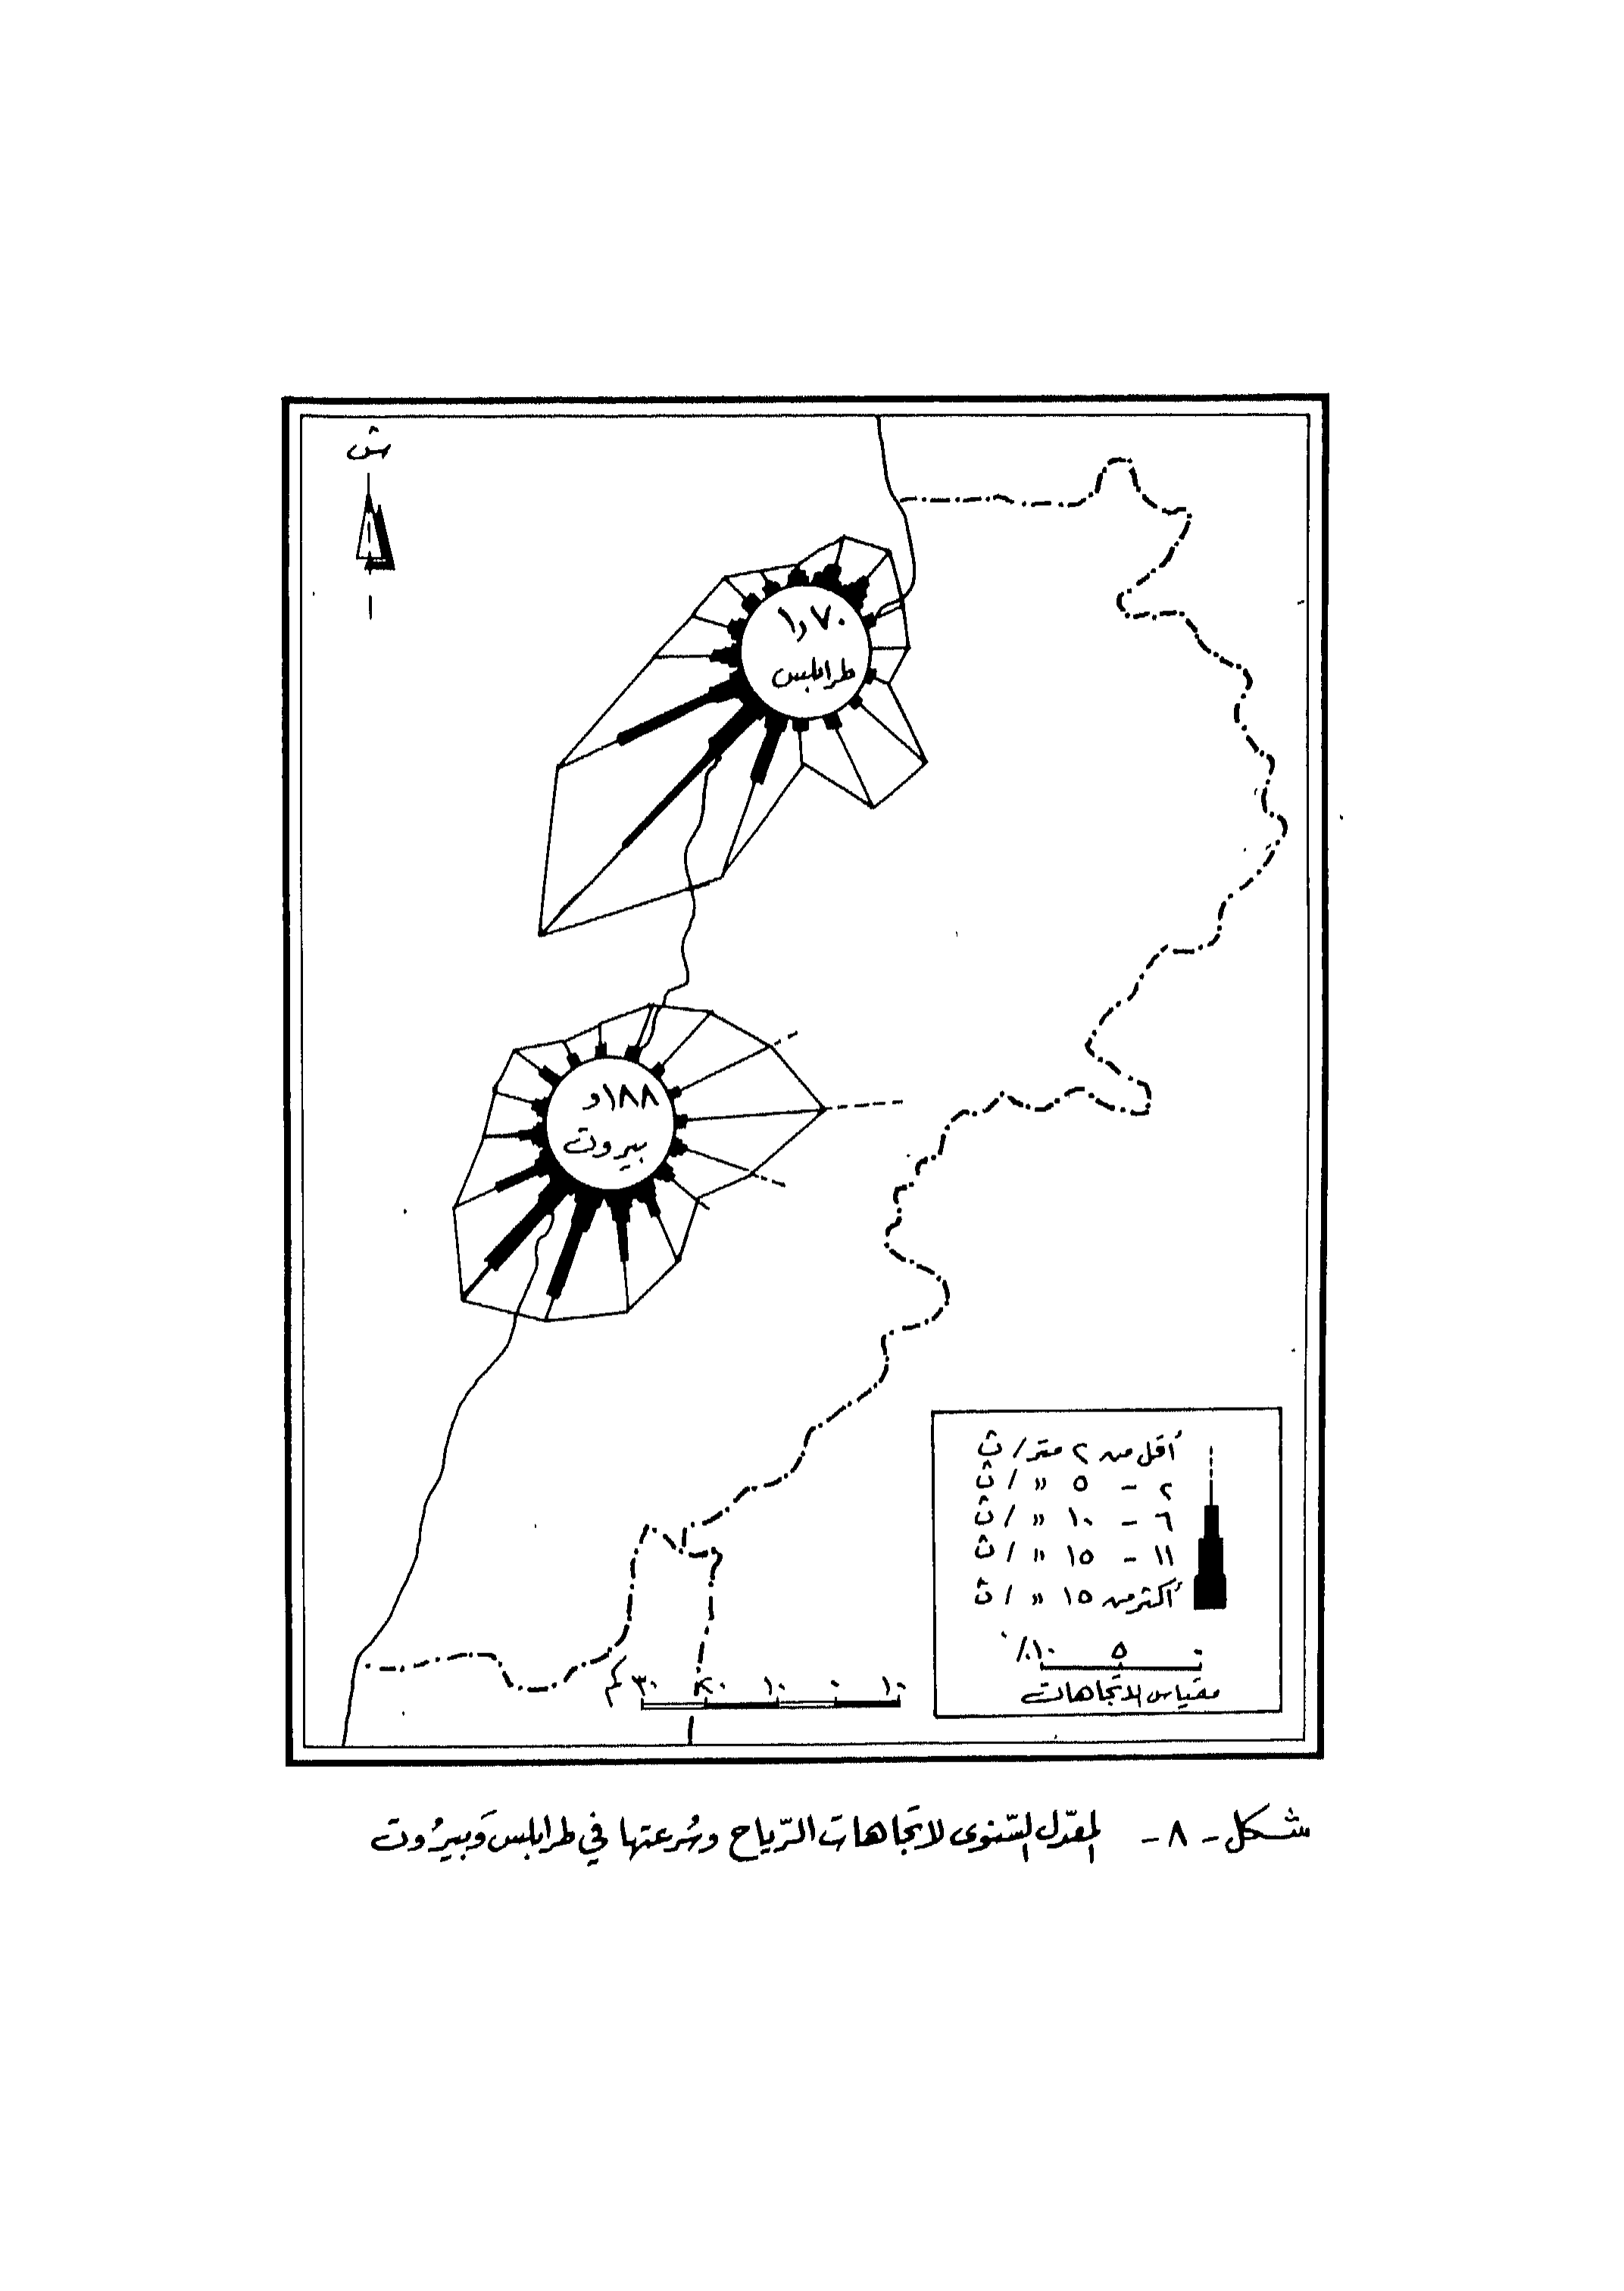 ش
١٫٧٠
طرابلس
٫١٨٨
بيروت
أقل من ٢ متر / ث
٢ - ٥ " / ث
٦ - ١٠ " / ث
١١ - ١٥ " / ث
أكثر من ١٥ " / ث
٠ ٥ ١٠٪
مقياس الاتجاهات
١٠ ٠ ١٠ ٢٠ ٣٠ كم
شكل - ٨ - المعدّل السّنوى لاتجاهات الرّياح وسُرعتها في طرابلس وَبيرُوت